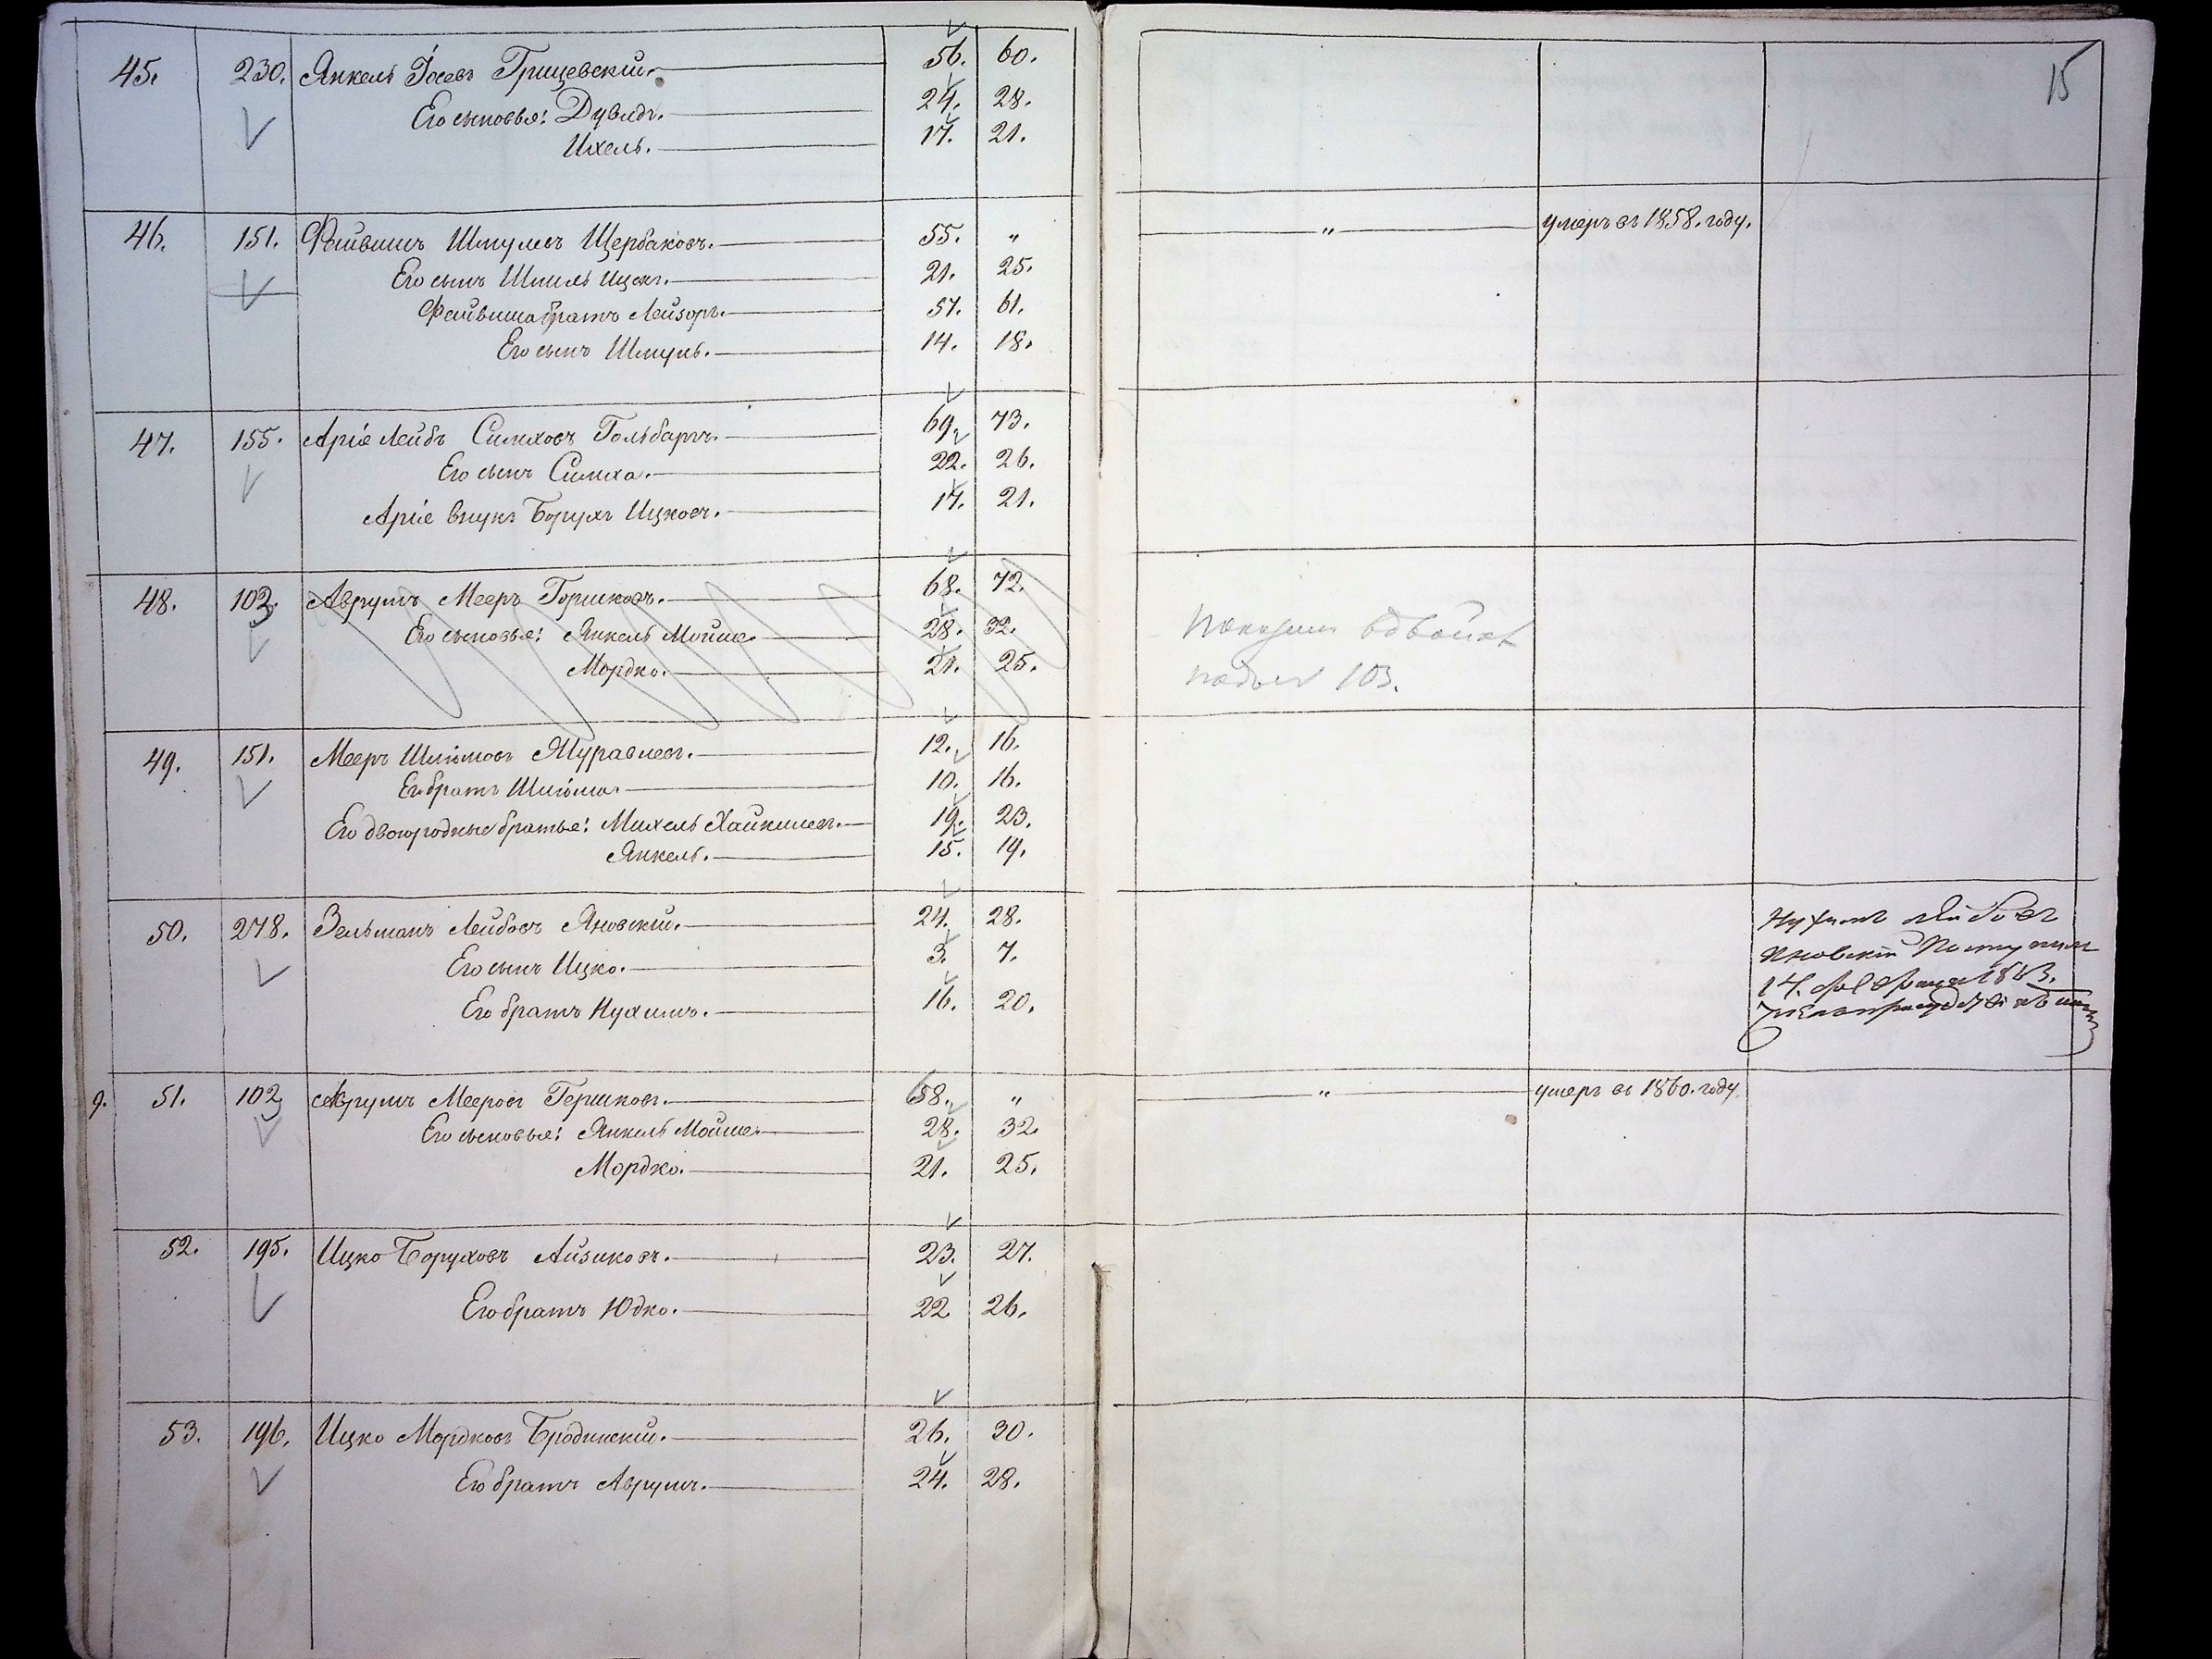 15
45. 230. Янкель Іосевъ Грищевскій. 56. 60.
Его сыновья: Дувидъ. 24. 28.
Ихель. 17. 21.
46. 151. Файвишъ Шмулевъ Щербаковъ. 55. „ „ умеръ въ 1858. году.
Его сынъ Шмиль Ицко. 21. 25.
Файвиша братъ Лейзоръ. 57. 61.
Его сынъ Шмуль. 14. 18.
47. 155. Аріе Лейбъ Симховъ Гольбартъ. 69. 73.
Его сынъ Симха. 22. 26.
Аріе внукъ Борухъ Ицковъ. 17. 21.
48. 103. Аврумъ Мееръ Гершковъ. 68. 72.
Его сыновья: Янкель Мойше 28. 32.
Мордко. 21. 25.
Показан вдвойне
подъ № 103.
49. 151. Мееръ Шліомовъ Муравлевъ. 12. 16.
Его братъ Шліома. 10. 16.
Его двоюродные братья: Михель Хайкилевъ. 19. 23.
Янкель. 15. 19.
50. 278. Зельманъ Лейбовъ Яновскій. 24. 28.
Его сынъ Ицко. 3. 7.
Его братъ Нухимъ. 16. 20.
Нухимъ Лейбовъ
Яновскій Поступил
14. февраля 1863.
9. 51. 102 Аврумъ Мееровъ Гершковъ. 68. „ „ умеръ въ 1860. году.
Его сыновья: Янкель Мойше. 28. 32.
Мордко. 21. 25.
52. 195. Ицко Боруховъ Айзиковъ. 23. 27.
Его братъ Юдко. 22 26.
53. 196. Ицко Мордковъ Бродинскій. 26. 30.
Его братъ Аврумъ. 24. 28.